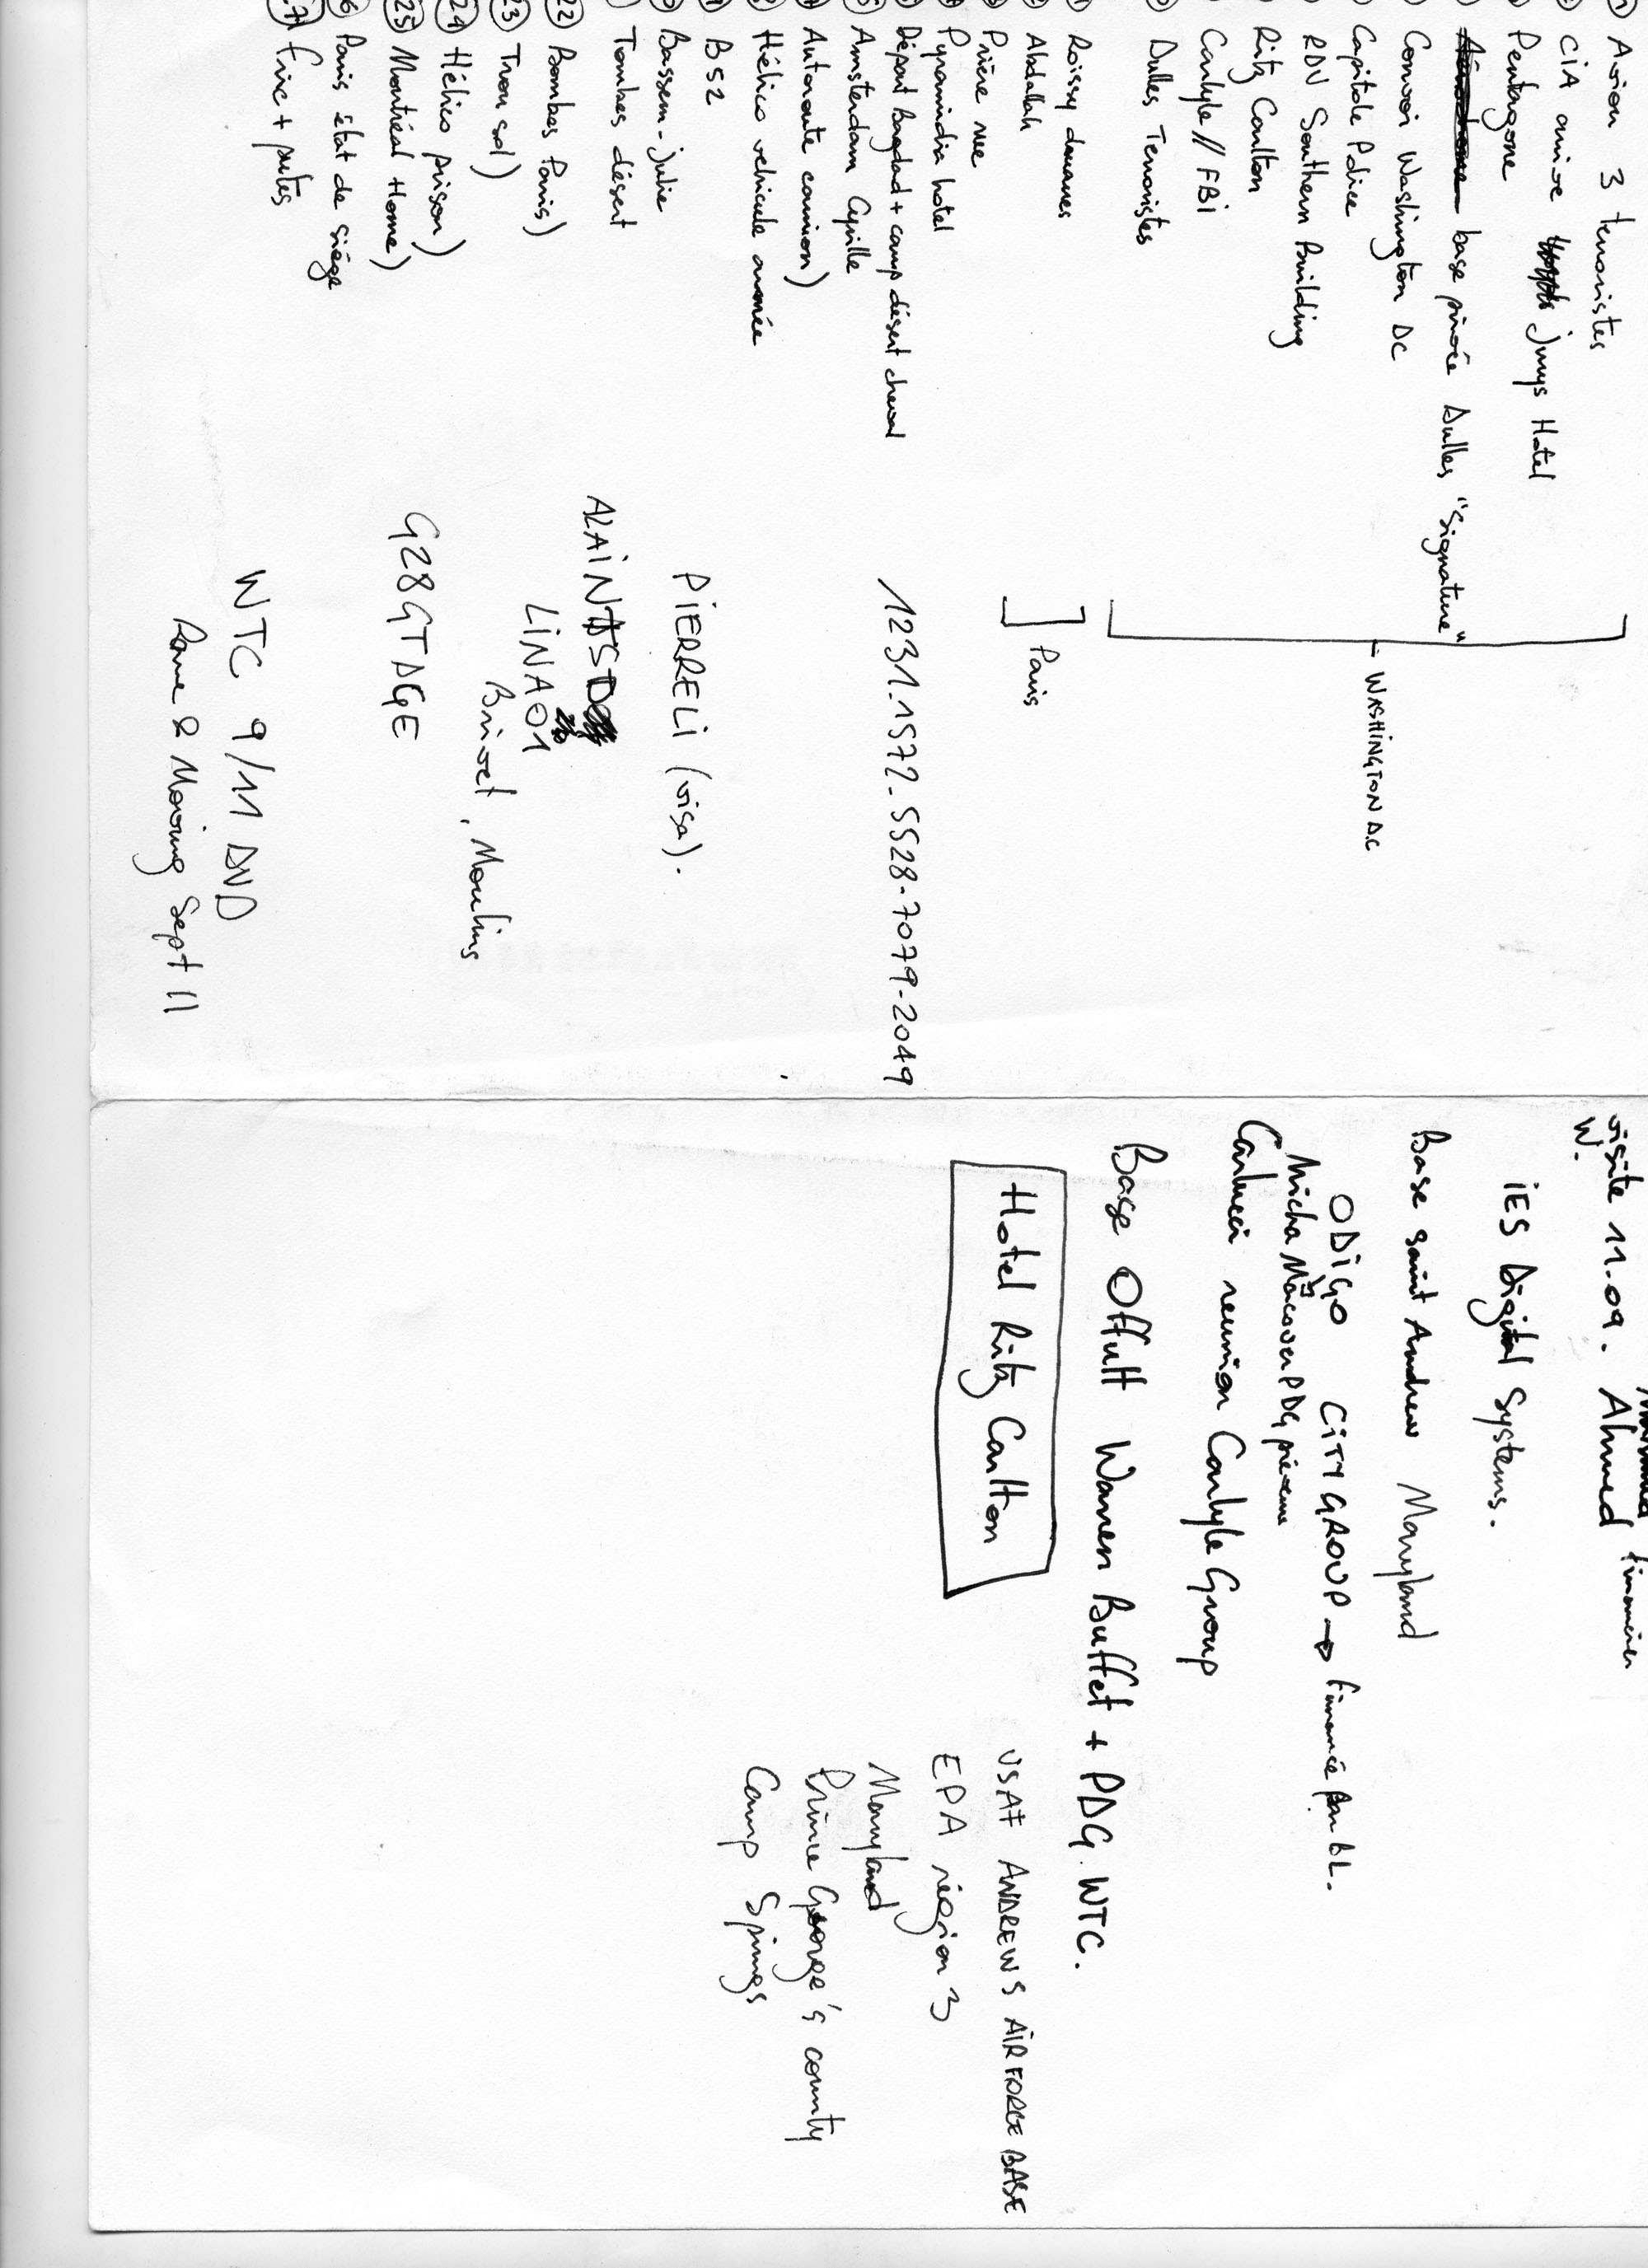 Avion 3 terroristes
CiA arrive jurys Hotel
Pentagone
base privée Dulles "Signature"
Convoi Washington DC
Capitole Police
RDV Southern Building
Ritz Carlton
Carlyle // FBi
Dulles Terroristes
WASHINGTON D.C
Roissy douanes
Abdallah
Prière rue
Paris
Pyramidia hotel
Départ Bagdad + camp désert cheval
Amsterdam Cyrille
Autoroute camion)
Hélico vehicule armée
B52
Bassem - julie
Tombes désert
22 Bombes Paris)
23 Trou sol)
24 Hélico prison)
25 Montréal Home)
Paris état de siège
Fric + putes
1231.1572-5528-7079-2049
PiERRELi (visa).
ALAiN
LiNA01
Brivet, Moulins
G28GTDGE
WTC 9/11 DVD
Rome & Moving Sept 11
financier
visite 11.09. Ahmed
W.
iES Digital Systems.
Base saint Andrew Maryland
ODiGO CiTY GROUP → financée par BL.
Micha Macover PDG
Carlucci reunion Carlyle Group
Base Offutt Warren Buffet + PDG. WTC.
Hotel Ritz Carlton
USAF ANDREWS AiRFORCE BASE
EPA région 3
Maryland
Prince George's county
Camp Springs